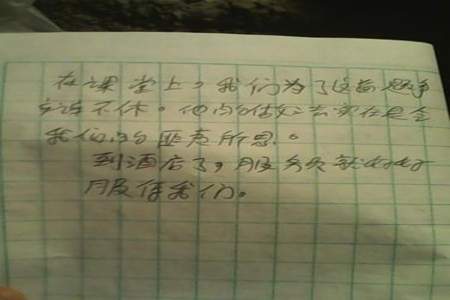 在课堂上，我们为了这道题争
论不休。他的做法实在是令
我们的匪夷所思。
到酒店了，服务员就好好
服侍我们。